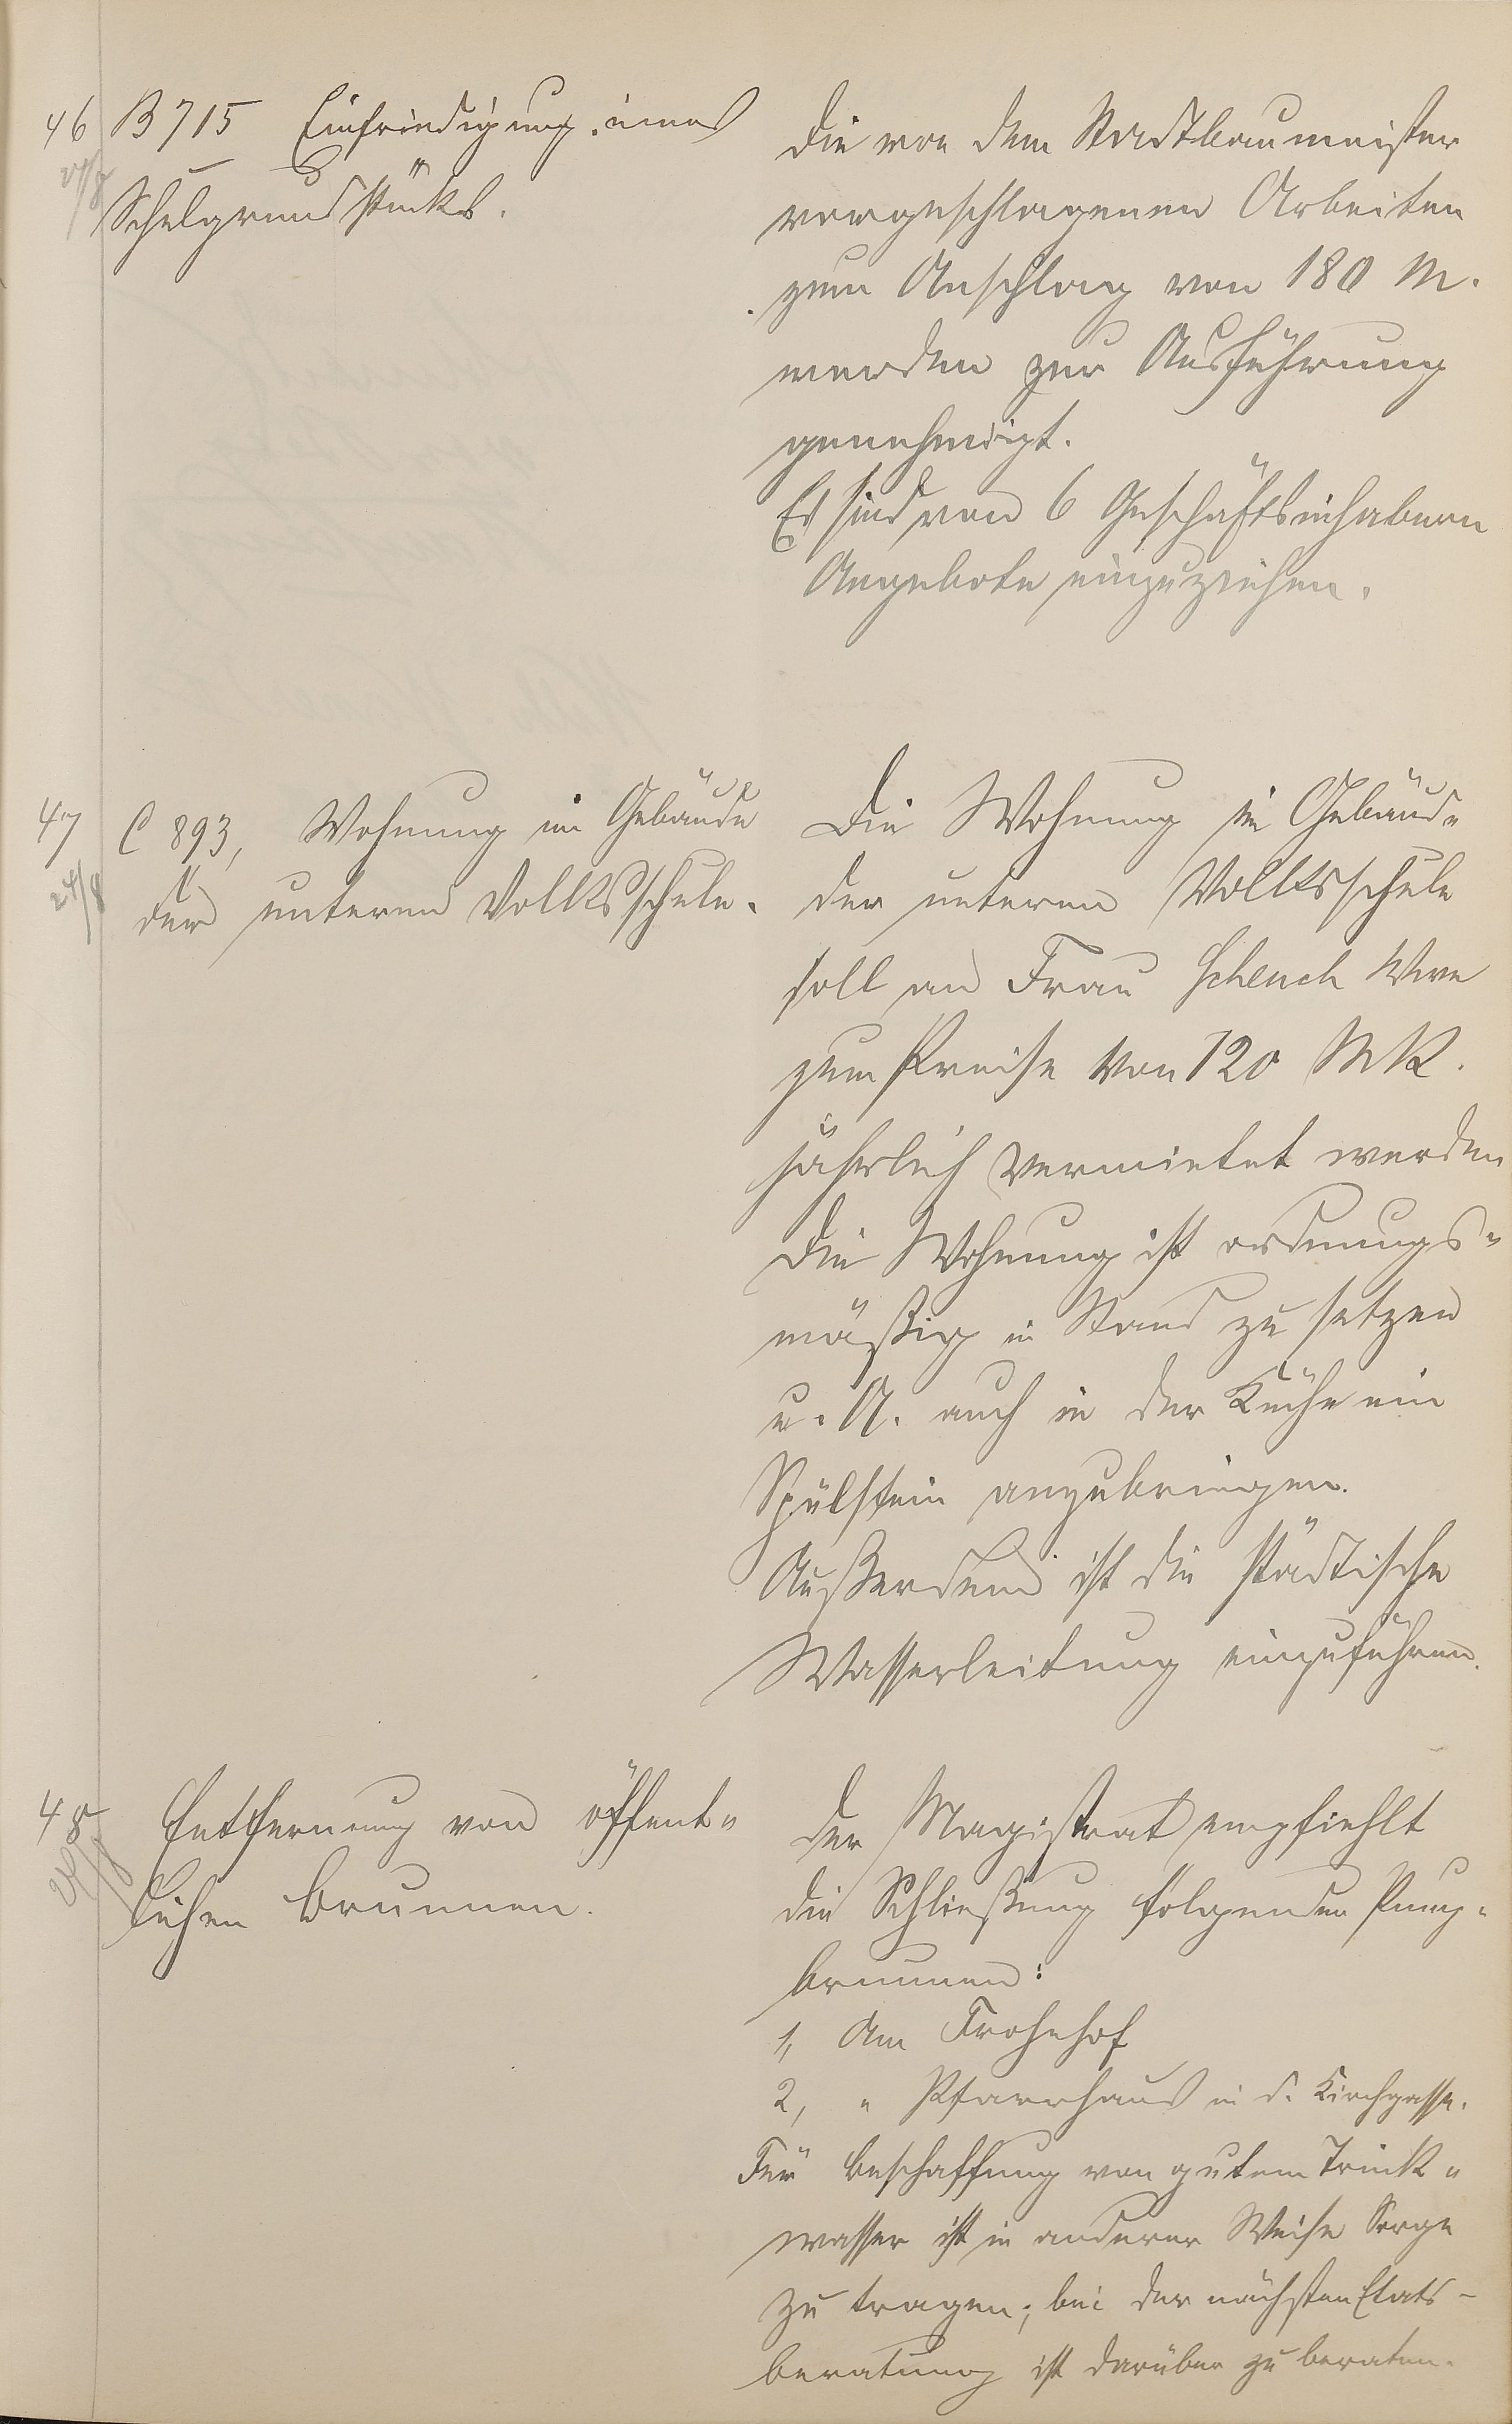 46 B 715 Einfriedigung eines
Schulgrundstücks.
Die von dem Stadtbaumeister
vorgeschlagenen Arbeiten
zum Anschlag von 180 M.
werden zur Ausführung
genehmigt.
Es sind von 6 Geschäftsinhabern
Angebote einzuziehen.
47 C 893, Wohnung im Gebäude
24/8
der unteren Volksschule.
Die Wohnung im Gebäude
der unteren Volksschule
soll an Frau Schenck Wwe
zum Preise von 120 MK.
jährlich vermietet werden
Die Wohnung ist ordnungs-
mäßig in Stand zu setzen
u. A. auch in der Küche ein
Spülstein anzubringen.
Außerdem ist die städtische
Wasserleitung einzuführen.
48 Entfernung von öffent-
lichen Brunnen.
Der Magistrat empfiehlt
die Schließung folgender Pump-
brunnen:
1, Am Frohnhof
2, " Pfarrhaus in d. Kirchgasse.
Für Beschaffung von gutem Trink-
wasser ist in anderer Weise Sorge
zu tragen; bei der nächsten Etats-
beratung ist darüber zu beraten.